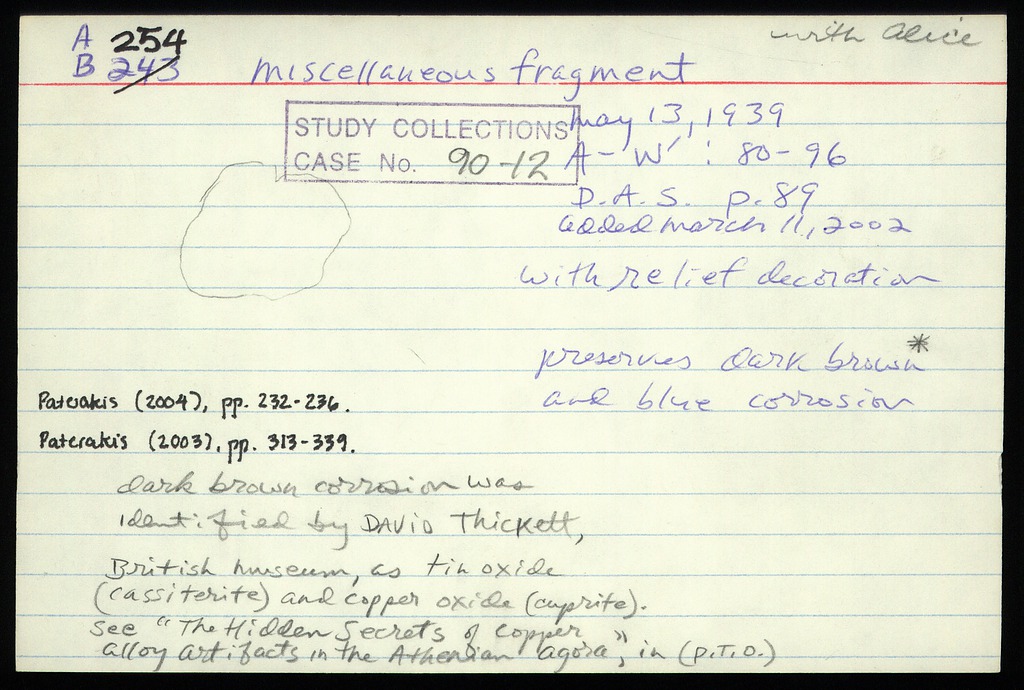 with Alice
A 254
B 243 miscellaneous fragment
STUDY COLLECTIONS
CASE No. 90-12
May 13, 1939
A-W' : 80-96
D.A.S. p. 89
added march 11, 2002
with relief decoration
preserves dark brown *
and blue corrosion
Paterakis (2004), pp. 232-236.
Paterakis (2003), pp. 313-339.
dark brown corrosion was
identified by DAVID Thickett,
British museum, as tin oxide
(cassiterite) and copper oxide (cuprite).
See "The Hidden Secrets of Copper
alloy artifacts in the Athenian agora", in (P.T.O.)